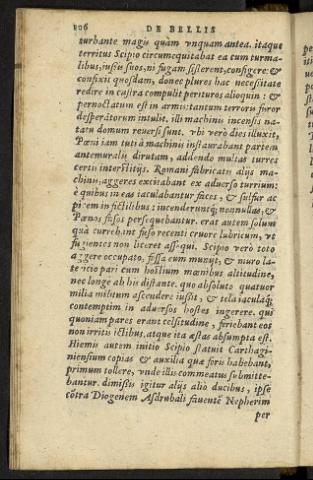 106 DE BELLIS
turbante magis quam vnquam antea. itaque
territus Scipio circumequitabat ea cum turma-
libus, iussis suos, ni fugam sisterent, configere: &
confixit quosdam, donec plures hac necessitate
redire in castra compulit perituros alioquin: &
pernoctatum est in armis: tantum terroris furor
desperatorum intulit. illi machinis incensis na-
tatu domum reuersi sunt. vbi verò dies illuxit,
Pœni iam tuti à machinis instaurabant partem
antemuralis dirutam, addendo multas turres
certis interstitijs. Romani fabricatis alijs ma-
chinis, aggeres excitabant ex aduerso turrium:
è quibus in eas iaculabantur faces, & sulfur ac
picem in fictilibus: incenderuntq; nonnullas, &
Pœnos fusos persequebantur. erat autem solum
quà curreb.int fuso recenti cruore lubricum, vt
fugientes non liceret assequi. Scipio verò toto
aggere occupato, fossa eum muniit, & muro la-
tericio pari cum hostium mœnibus altitudine,
nec longe ab his distante. quo absoluto quatuor
milia militum ascendere iussit, & tela iaculaq;
contemptim in aduersos hostes ingerere. qui
quoniam pares erant celsitudine, feriebant eos
non irritis ictibus. atque ita æstas absumpta est.
Hiemis autem initio Scipio statuit Carthagi-
niensium copias & auxilia quæ foris habebant,
primum tollere, vnde illis commeatus submitte-
bantur. dimissis igitur alijs aliò ducibus, ipse
cōtra Diogenem Asdrubali fauentē Nepherim
per